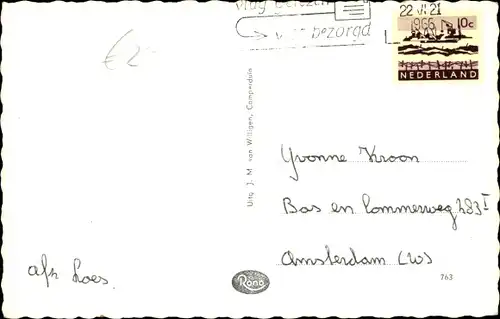 €2-
vlug bezorgd
22 VI 21
1966
10c
NEDERLAND
Uitg. J. M. van Willigen, Camperduin
Yvonne Kroon
Bos en Lommerweg 283 I
Amsterdam (W)
afz Loes.
Rono
763